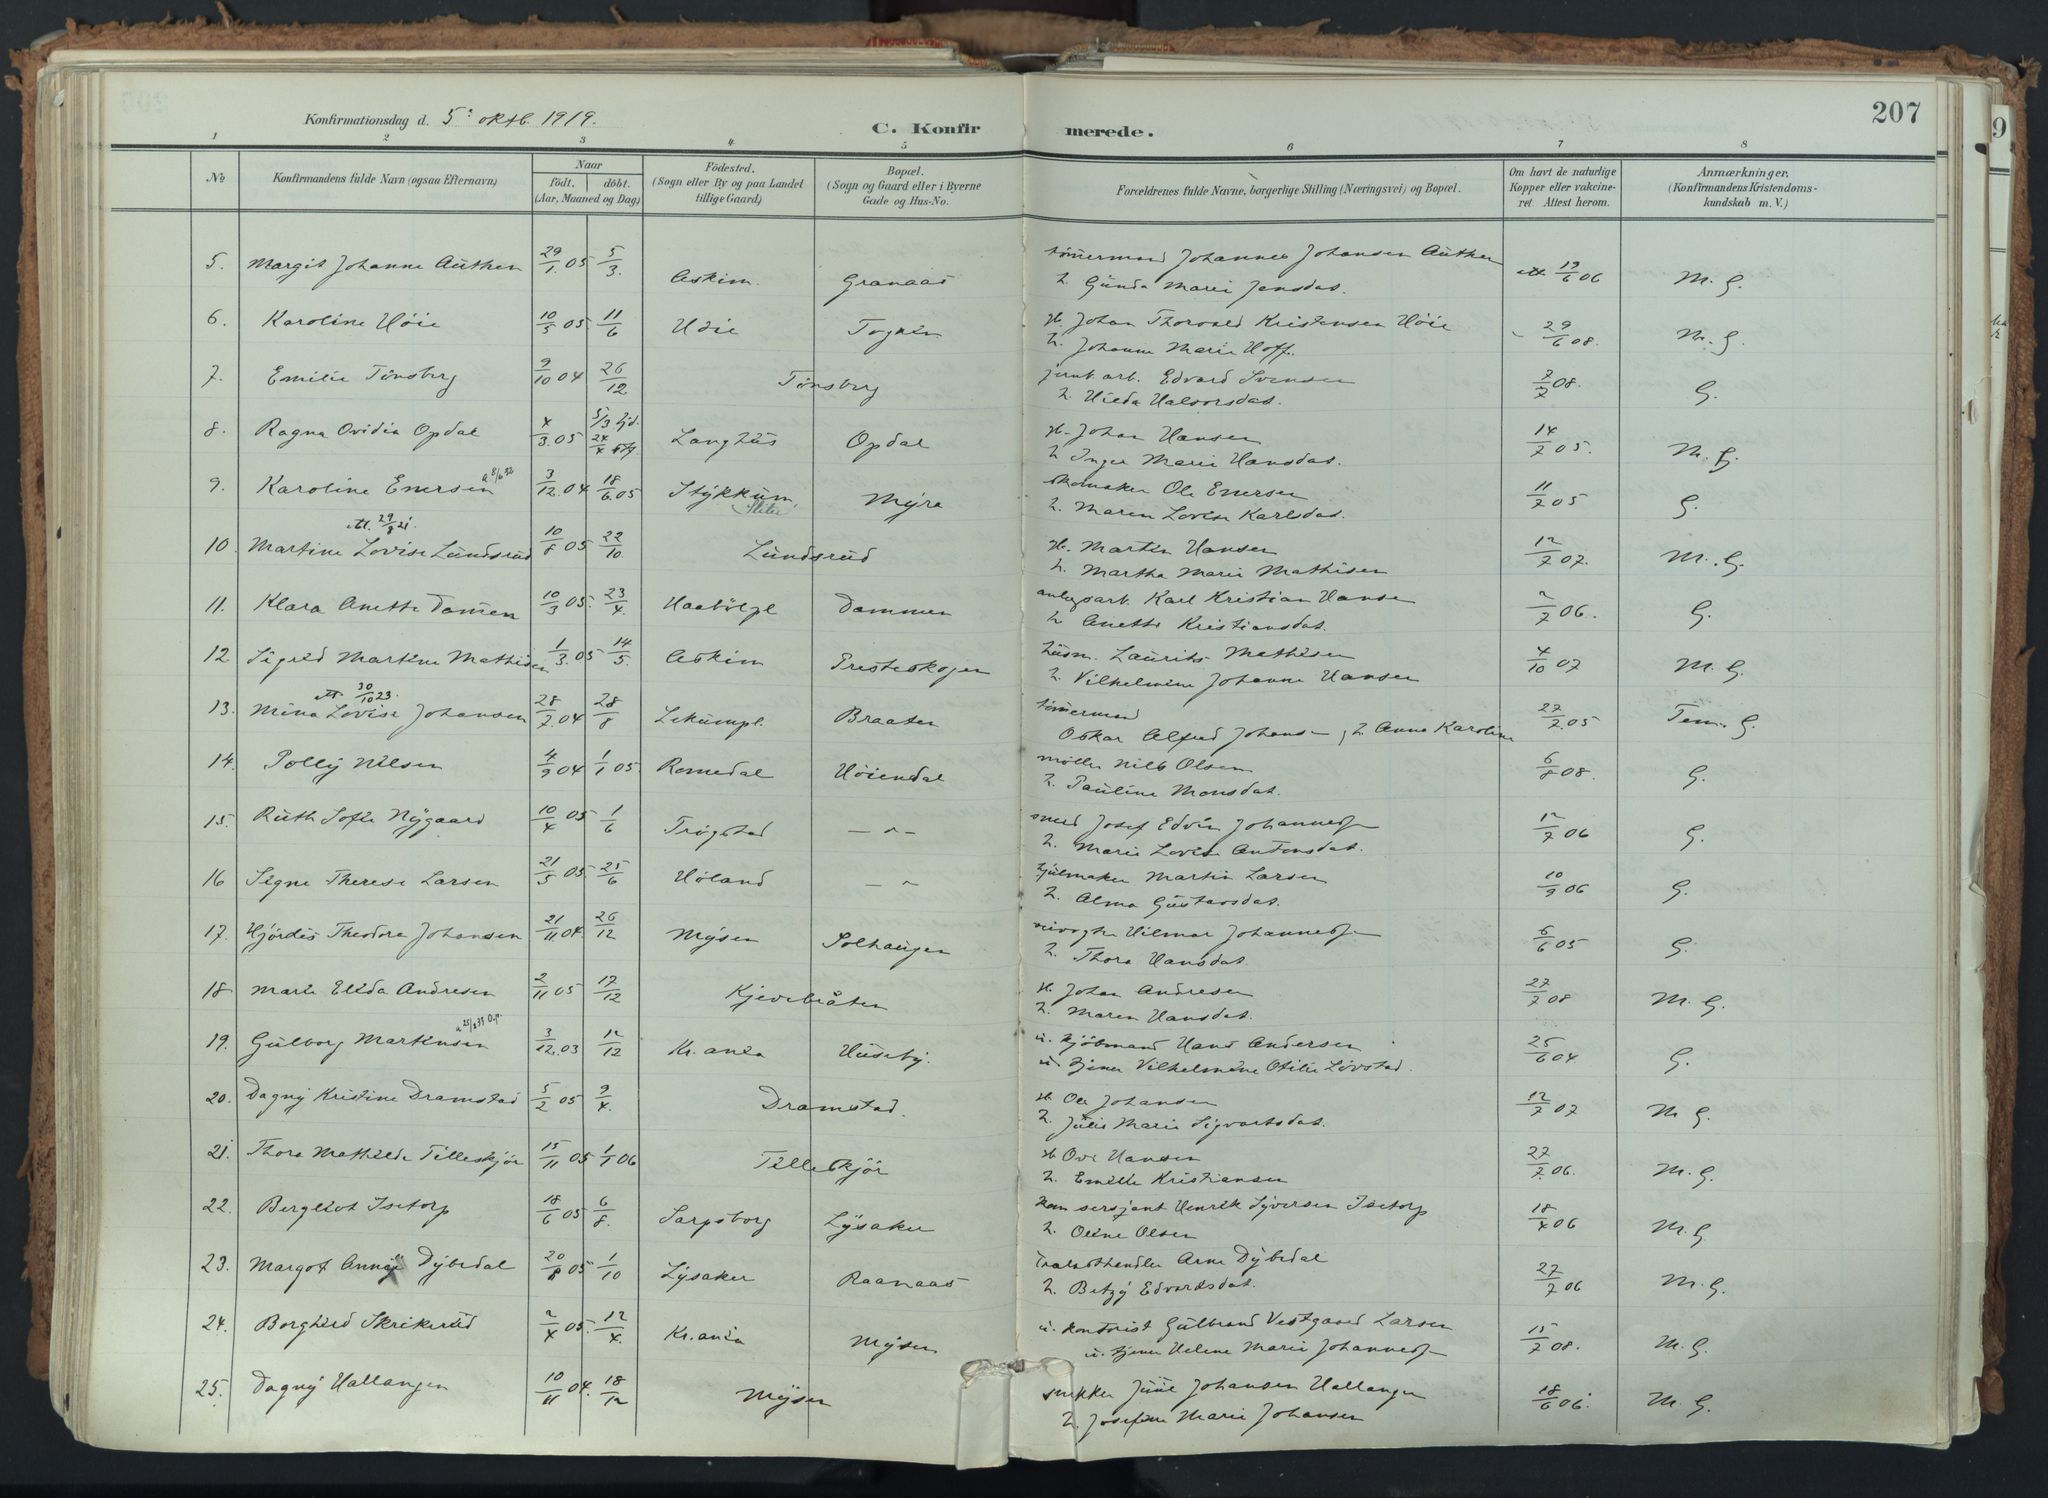 207
Konfirmationsdag d. 5: oktb. 1919.
C. Konfirmerede.
1 2 3 4 5 6 7 8
No
Konfirmandens fulde Navn (ogsaa Efternavn)
Naar
födt. döbt.
(Aar, Maaned og Dag)
Födested.
(Sogn eller By og paa Landet
tillige Gaard)
Bopæl.
(Sogn og Gaard eller i Byerne
Gade og Hus-No.
Forældrenes fulde Navne, borgerlige Stilling (Næringsvei) og Bopæl.
Om havt de naturlige
Kopper eller vakcine-
ret. Attest herom.
Anmærkninger.
(Konfirmandens Kristendoms-
kundskab m. V.)
5. Margit Johanne Authen 29/1 05 5/3. Askim. Granaas tömmermand Johannes Johansen Authen
h. Gunda Marie Jensdat. att. 19/6 06 M. G.
6. Karoline Höie 10/5 05 11/6 Höie gb. Johan Thorvald Kristensen Höie
h. Johanne Marie Hoff. 29/6 08. M. G.
7. Emilie Tönsberg 9/10 04 26/12 Tönsberg jernb. arb. Edvard Svensen
h. Hilda Halvorsdat. 7/7 08. G.
8. Ragna Ovidia Opdal 4/3. 05 5/3 hjd. 24/4 Langhus Opdal gb. Johan Hansen
h. Inger Marie Hansdat. 14/7 05. M. G.
9. Karoline Enersen 3/12. 04 18/6. 05 Stykkum Myra skomaker Ole Enersen
h. Maren Lovise Karlsdat. 11/7 05 G.
att. 29/8 21.
10. Martine Lovise Lundsrud 10/8 05 22/10 Lundsrud gb. Martin Hansen
h. Martha Marie Mathisen 12/7 07. M. G.
11. Klara Anette Damen 10/3 05. 23/4. Haabölpl. Dammen anlegsarb. Karl Kristian Hansen
h. Anette Kristiansdat. 2/7 06. G.
12 Sigrid Martine Mathisen 1/3. 05 14/5. Askim Presteskogen husm. Laurits Mathisen
h. Vilhelmine Johanne Hansen 4/10 07 M. G.
att. 30/10 23.
13. Mina Lovise Johansen 28/7. 04 28/8 Lekumpl. Braaten tömmermand
Oskar Alfred Johans- , h. Anna Karoline 27/7. 05 Tem. G.
14. Polly Nilsen 4/9 04 1/1 05. Romedal Höiendal møller Nils Olsen
h. Pauline Monsdat. 6/8 08. G.
15. Ruth Sofie Nygaard 10/4 05 1/6 Trögstad — " — smed Josef Edvin Johannes-
h. Marie Lovise Antonsdat. 12/7 06 G.
16 Signe Therese Larsen 21/5 05. 25/6 Höland — " hjulmaker Martin Larsen
h. Alma Gustavsdat. 10/9 06 G.
17. Hjördis Theodora Johansen 21/11 04. 26/12 Mysen Solhaugen veivogter Hilmar Johannes-
h. Thora Hansdat. 6/6 05 G.
18 Marie Elida Andresen 2/11 05 17/12 Kjevebråten gb. Johan Andresen
h. Maren Hansdat. 27/7 08 M. G.
19. Gulborg Martinsen 3/12. 03 12/12 Kr.ania Huseby. u. kjöbmand Hans Andersen
u. tjener Vilhelmine Otilie Lövstad. 25/6 04 G.
20. Dagny Kristine Dramstad 5/2 05 9/4. Dramstad. gb. Ole Johansen
h. Julie Marie Sigvartsdat. 12/7 07 M. G.
21. Thora Mathilde Tilleskjör 15/11 05 1/1 06 Tilleskjör gb. Ove Hansen
h. Emilie Kristiansen 27/7. 06. M. G.
22. Bergliot Isetorp 18/6 05 6/8. Sarpsborg Lysaker kom. sersjant Henrik Syversen Isetorp
h. Oline Olsen 18/4 06 M. G.
23. Margot Anny Dybedal 20/8 05 1/10 Lysaker Raanaas trælasthandler Arne Dybedal
h. Betzy Edvardsdat. 27/7 06 M. G.
24. Borghild Skrikerud 2/4 05. 12/4. Kr.ania Mysen u. kontorist Gulbrand Vestgaard Larsen
u. tjener Helene Marie Johannes- 15/7 08. M. G.
25. Dagny Hallangen 10/11 04. 18/12 Mysen snekker Juul Johansen Hallangen
h. Josefine Marie Johansen 18/6 06. M. G.